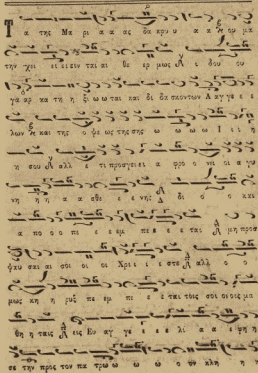 Τα της Μα ρι α ας δα κρυ υ α α ου μα
την χει ει ει ειν ται αι θε ερ μως Α δου ου
γα αρ κα τη η ξι ω ται και δι δα σκον των Α αγ γε ε
λων και της ο ψε ως της σης ω ω ω ω Ι ι η
η σου Αλλ ε τι προσ γει ει α φρο ο νει οι α γυ
νη η η α α σθε ε ε νης δι ο ο και
α πο ο ο πε ε εμ πε ε ε ε ται μη προσ
ψαυ σαι αι σοι οι οι Χρι ι ε ε στε αλλ ο ο
μως κη η ρυξ πε εμ πε ε ε ται τοις σοις οι οις μα
θη η ταις εις Ευ αγ γε ε ε λι ι α α ε φη η
σε την προς τον πα τρω ω ω ω ον κλη η η